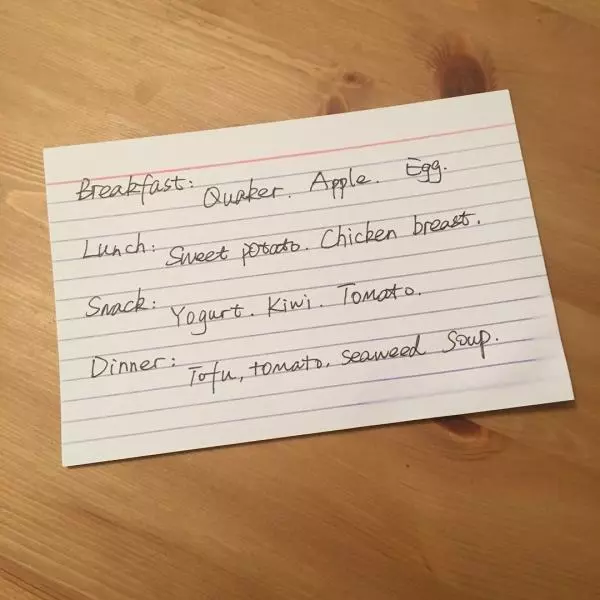 Breakfast: Quaker. Apple. Egg.
Lunch: Sweet potato. Chicken breast.
Snack: Yogurt. Kiwi. Tomato.
Dinner: Tofu, tomato, seaweed soup.